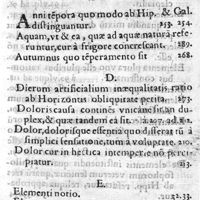 Anni tēpora quo modo ab Hip. & Gal.
distinguantur. 53. 254.
Aquam, vt & ea, quæ ad aquæ naturā refe
runtur, cur à frigore concrescant. 189.
Autumnus quo tēperamento sit 268.
D.
Dierum artificialium inæqualitatis ratio
ab Horizontis obliquitate petita 273.
Doloris causa continēs vnica ne sit, an du
plex, & quæ tandem ea sit. 207.
Dolor, doloris que essentia quo differat tū à
simplici sensatione, tum à voluptate. 210.
Dolor cur in hectica intemperie nō perci
piatur. 213.
E.
Elementi notio. 32. 33.